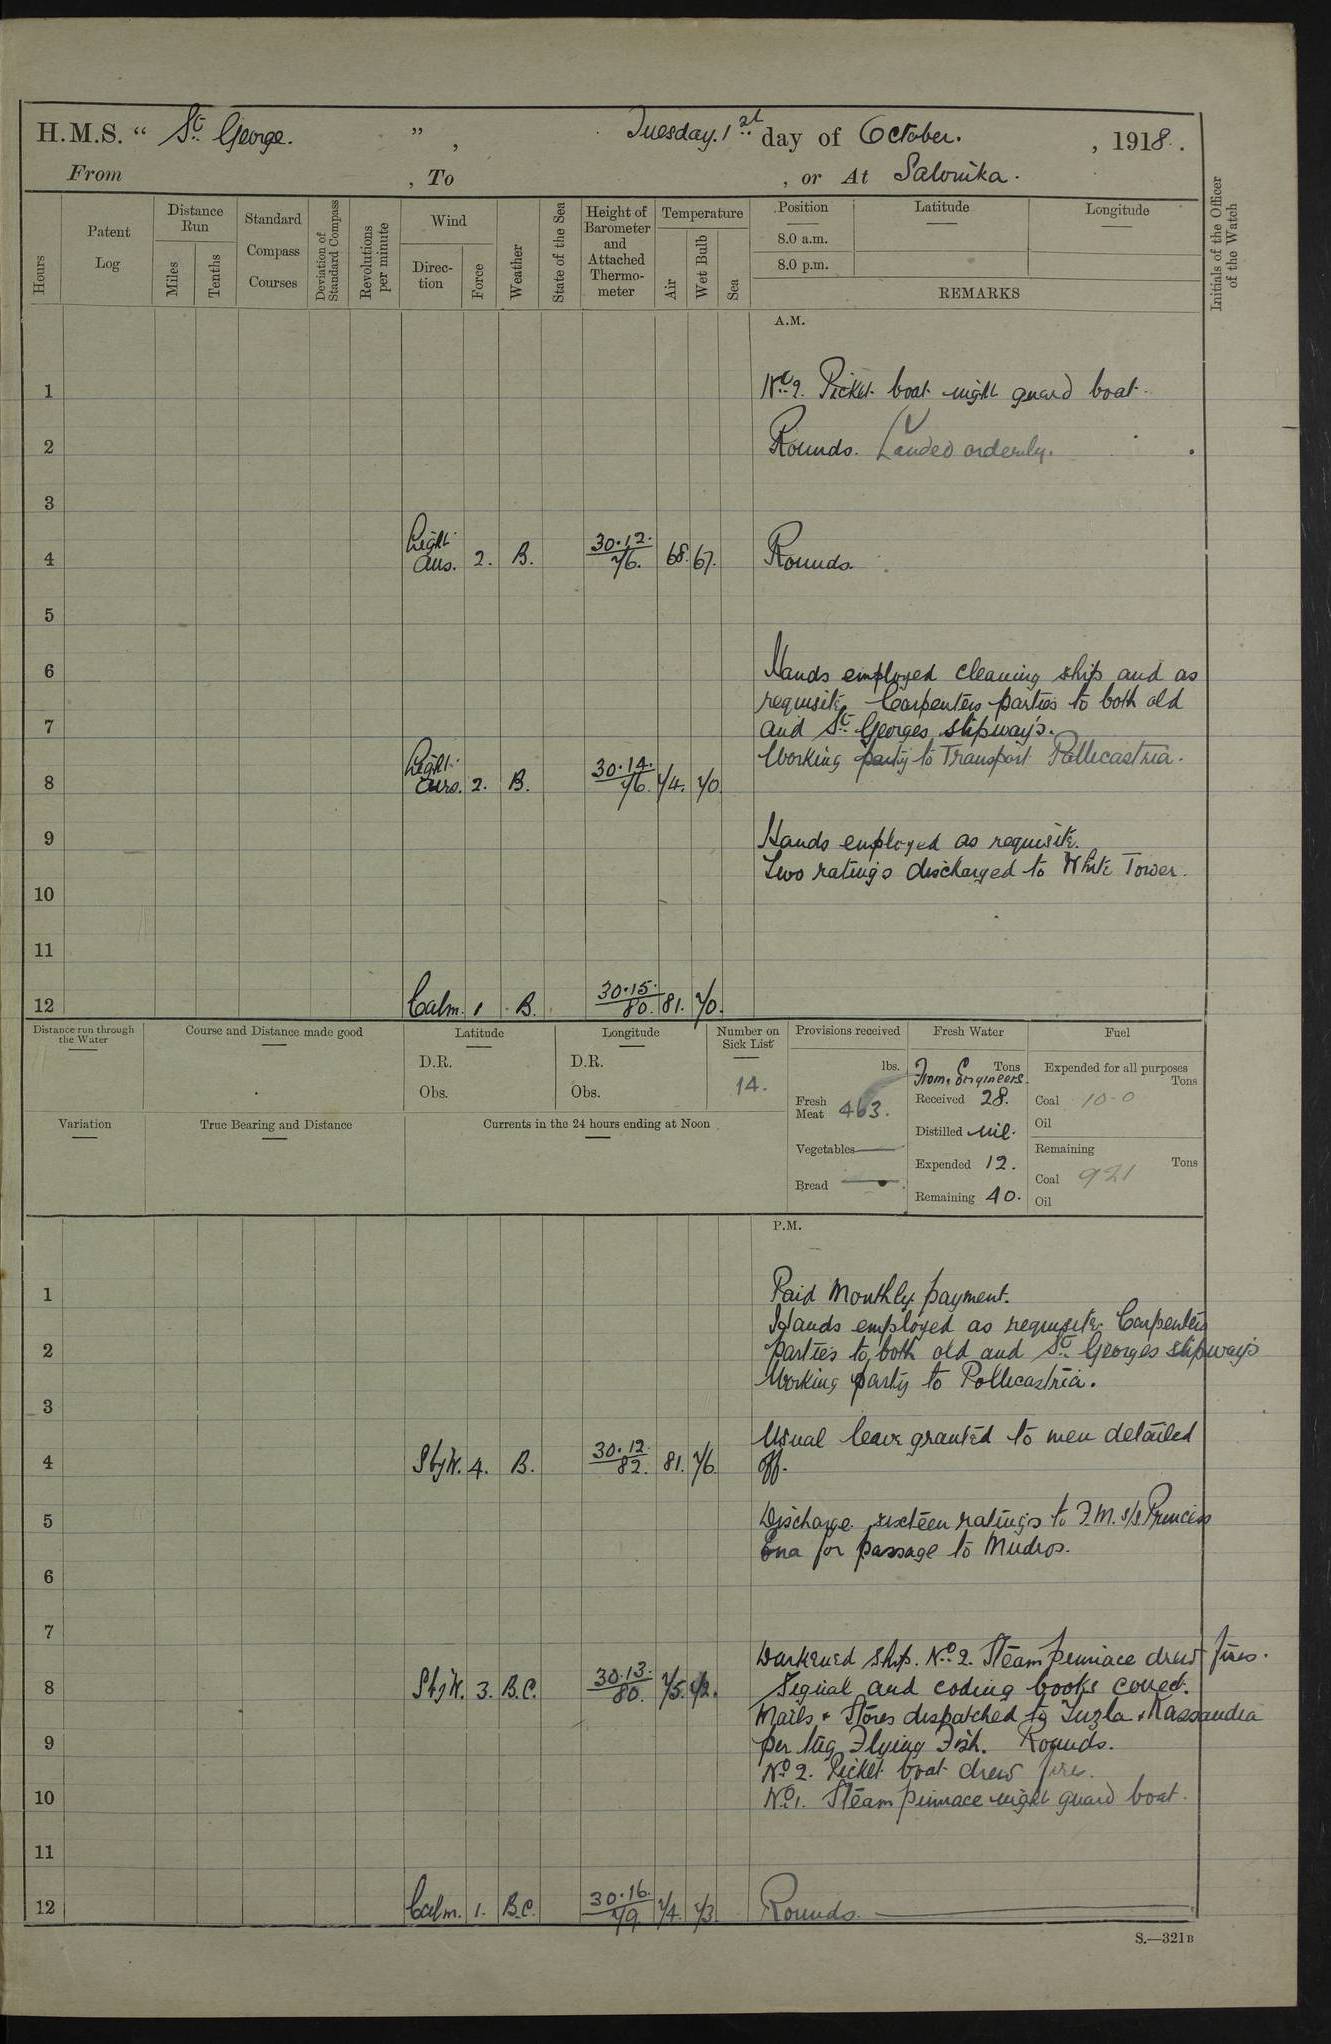 H.M.S. “ St George. ” , Tuesday. 1st day of October. , 1918.
From , To , or At Salonika.
Hours
Patent Log
Distance Run
Miles
Tenths
Standard Compass Courses
Deviation of Standard Compass
Revolutions per minute
Wind
Direc-tion
Force
Weather
State of the Sea
Height of Barometer and Attached Thermo-meter
Temperature
Air
Wet Bulb
Sea
Position
8.0 a.m.
8.0 p.m.
Latitude
Longitude
REMARKS
Initials of the Officer of the Watch
A.M.
1 No 2. Picket boat night guard boat.
2 Rounds. Landed orderly.
3
4 Light airs. 2. B. 30.12. 76. 68. 67. Rounds.
5
6 Hands employed cleaning ship and as
requisite. Carpenters parties to both old
7 and St Georges slipways.
Working party to Transport Pollicastria.
8 Light airs. 2. B. 30.14. 76. 74. 70.
9 Hands employed as requisite.
Two ratings discharged to White Tower.
10
11
12 Calm. 1 B. 30.15. 80. 81. 70.
Distance run through the Water
Course and Distance made good
Latitude
D.R.
Obs.
Longitude
D.R.
Obs.
Number on Sick List
14.
Provisions received
lbs.
Fresh Meat 463.
Vegetables —
Bread —
Fresh Water
Tons
From Engineers.
Received 28.
Distilled Nil.
Expended 12.
Remaining 40.
Fuel
Expended for all purposes
Tons
Coal 10-0
Oil
Remaining
Tons
Coal 921
Oil
Variation
True Bearing and Distance
Currents in the 24 hours ending at Noon
P.M.
1 Paid Monthly payment.
Hands employed as requisite. Carpenters
2 parties to both old and St Georges slipways
Working party to Pollicastria.
3
Usual leave granted to men detailed
4 SbyW. 4. B. 30.12. 82. 81. 76. off.
5 Discharge sixteen ratings to F.M. s/s Princess
Ena for passage to Mudros.
6
7
Darkened ship. No 2. Steam pinnace drew fires.
8 SbyW. 3. B.C. 30.13. 80. 75. 72. Signal and coding books correct.
Mails & Stores dispatched to Tuzla & Kassandra
9 per tug Flying Fish. Rounds.
No 2. Picket boat drew fires.
10 No 1. Steam pinnace night guard boat.
11
12 Calm. 1. B.C. 30.16. 79. 74. 73. Rounds.
S.—321B